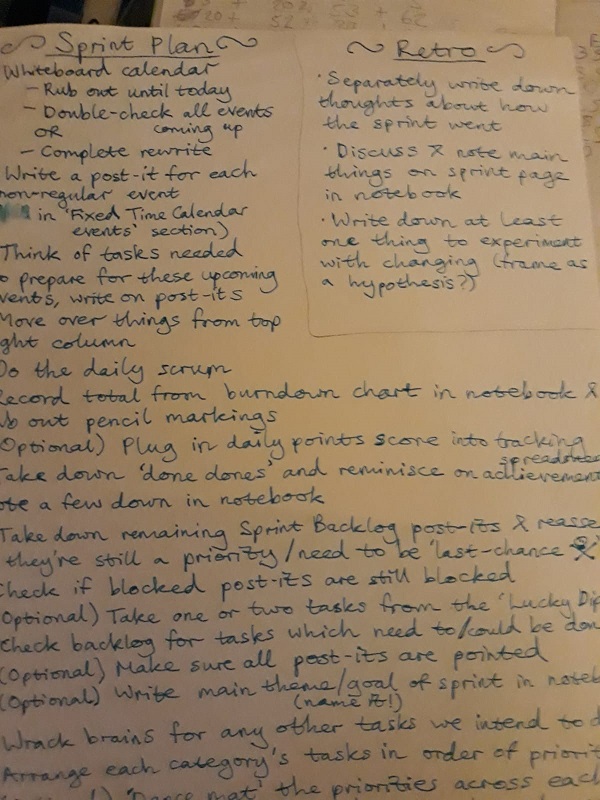 Sprint Plan
Whiteboard calendar
- Rub out until today
- Double-check all events
OR coming up
- Complete rewrite
Write a post-it for each
non-regular event
in 'Fixed Time Calendar
events' section)
Think of tasks needed
to prepare for these upcoming
events, write on post-its
Move over things from top
right column
Retro
· Separately write down
thoughts about how
the sprint went
· Discuss & note main
things on sprint page
in notebook
· Write down at least
one thing to experiment
with changing (frame as
a hypothesis?)
Do the daily scrum
Record total from burndown chart in notebook &
rub out pencil markings
(Optional) Plug in daily points score into tracking
spreadsheet
Take down 'done dones' and reminisce on achievement
note a few down in notebook
Take down remaining Sprint Backlog post-its & reasse
they're still a priority/need to be 'last-chance
Check if blocked post-its are still blocked
(Optional) Take one or two tasks from the 'Lucky Dip
Check backlog for tasks which need to/could be don
(Optional) Make sure all post-its are pointed
(Optional) Write main theme/goal of sprint in noteb
(name it!)
Wrack brains for any other tasks we intend to d
Arrange each category's tasks in order of priorit
'Dance mat' the priorities across each